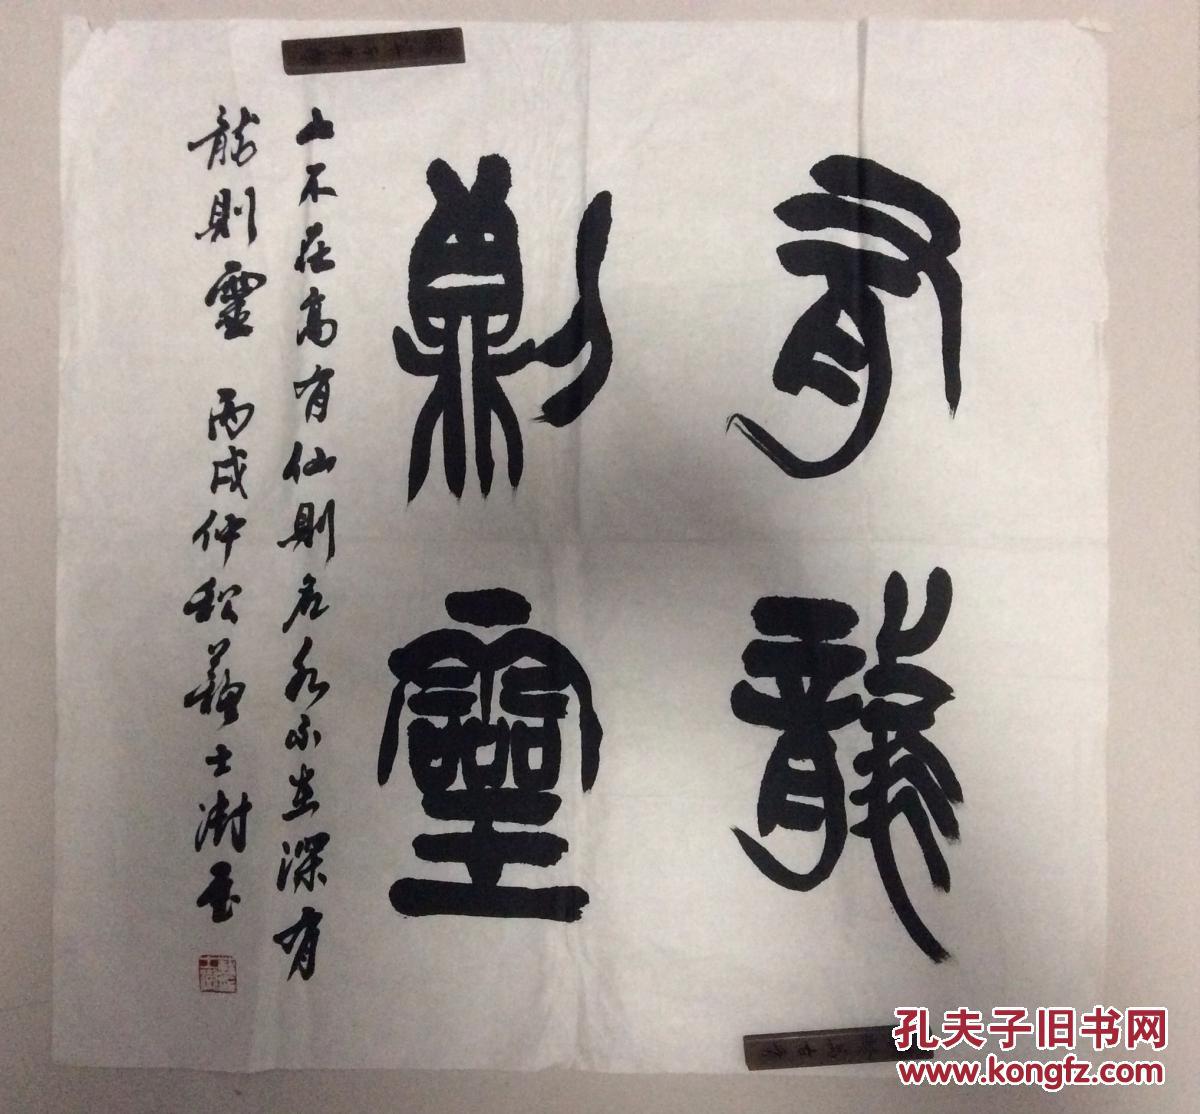 有龍
則靈
山不在高有仙則名水不在深有
龍則靈 丙戌仲秋蘇士澍書
孔夫子旧书网
www.kongfz.com